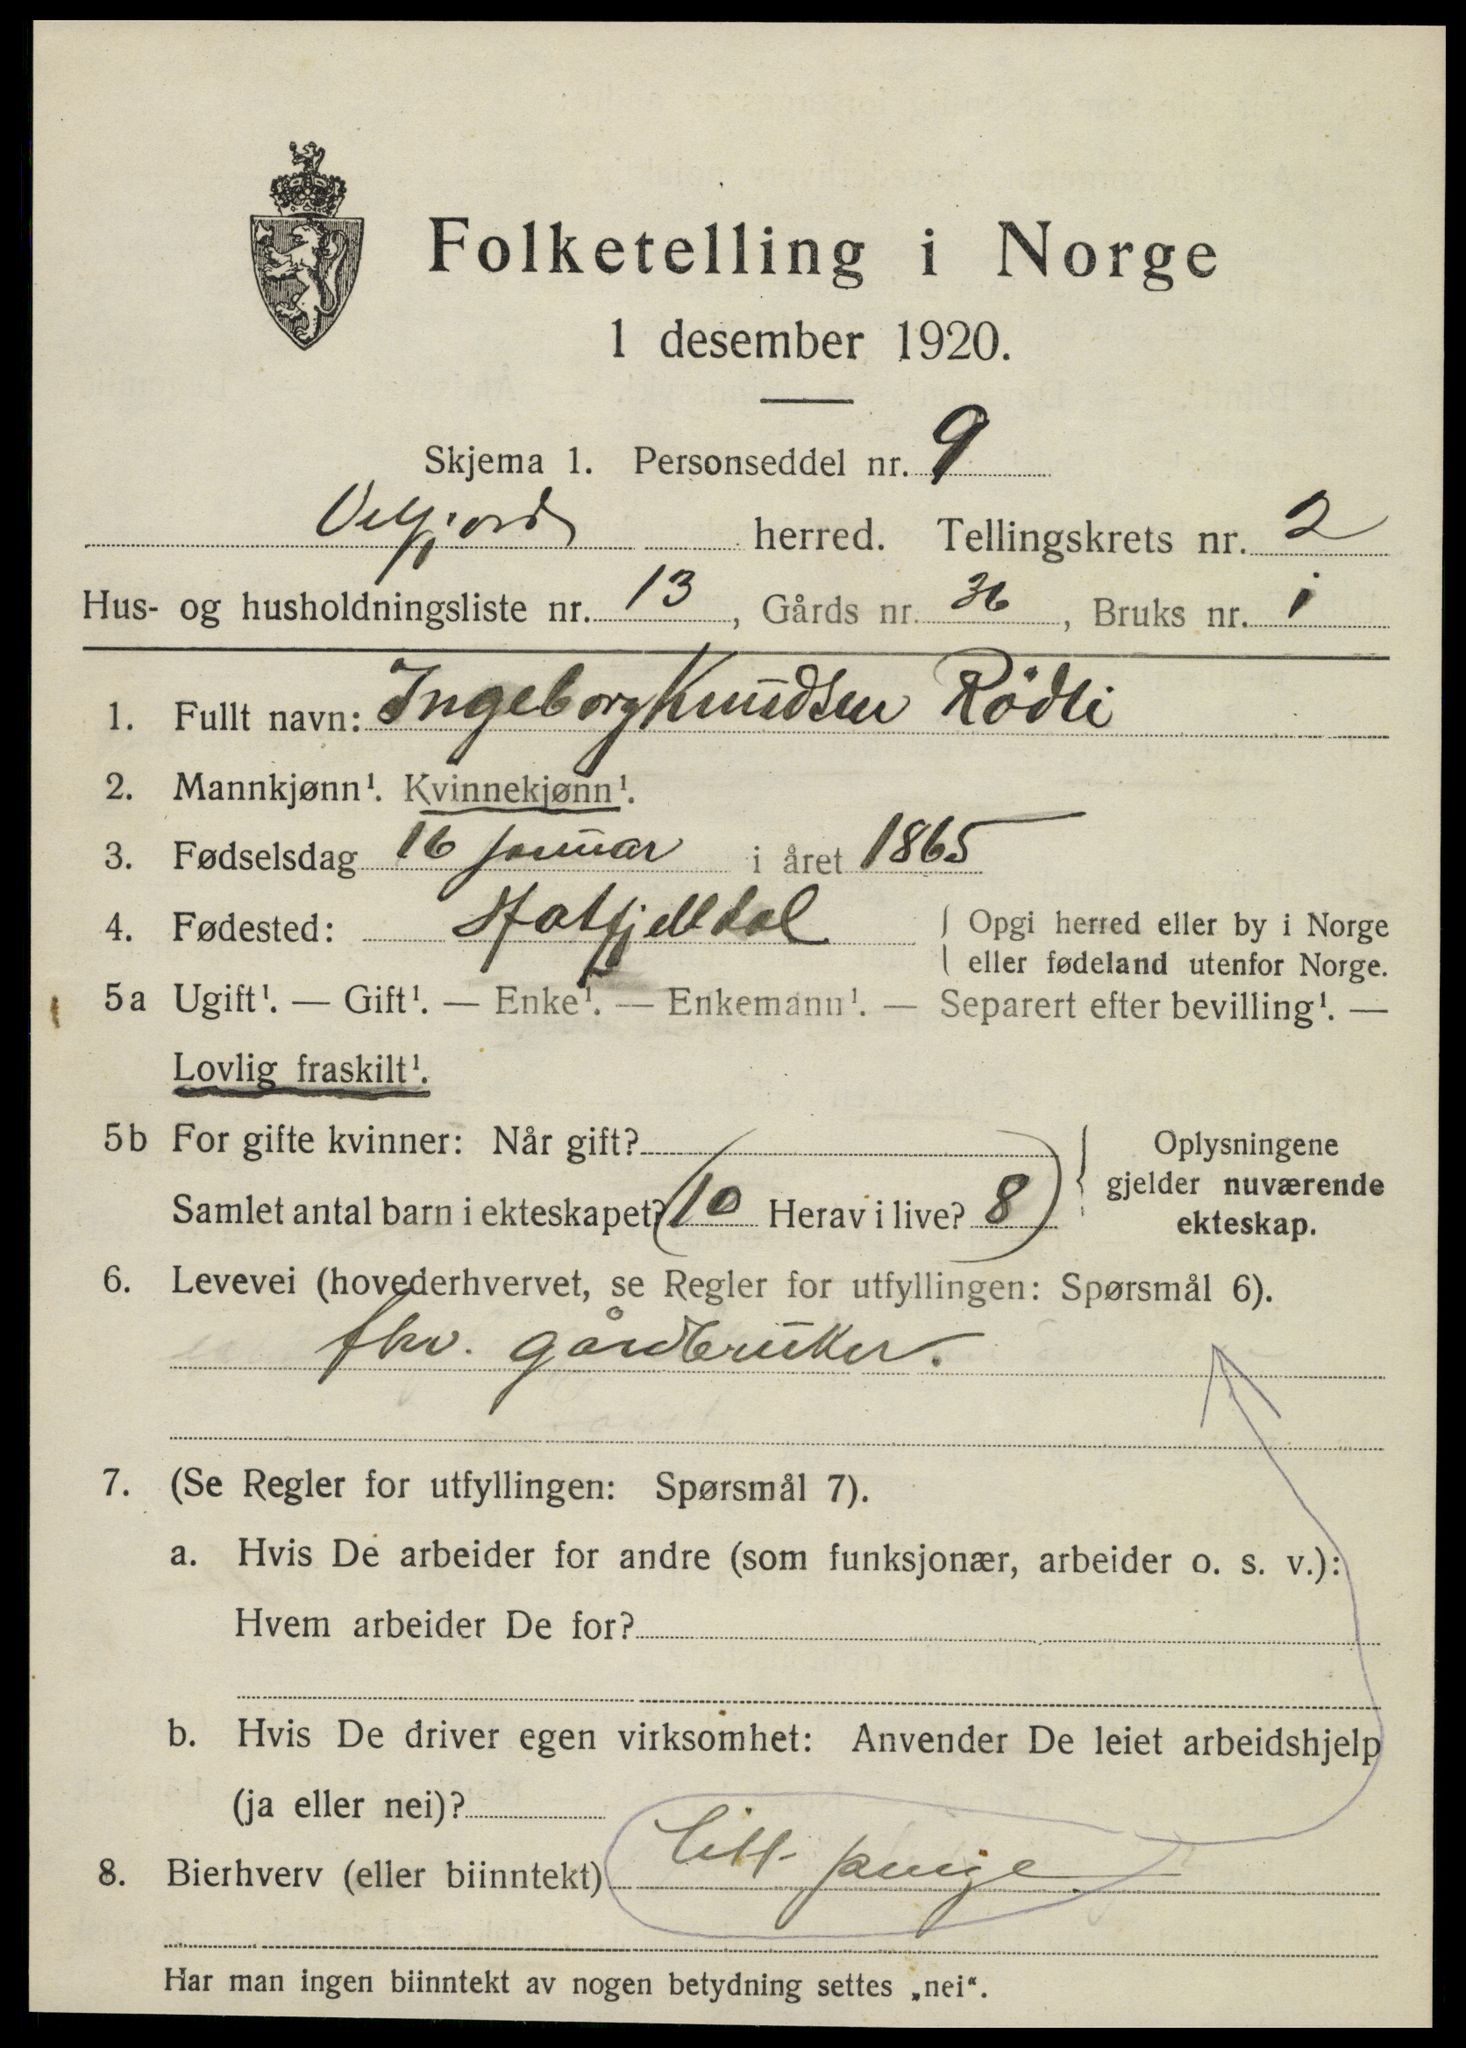 Folketelling i Norge
1 desember 1920.
Skjema 1. Personseddel nr. 9
Velfjord herred. Tellingskrets nr. 2
Hus- og husholdningsliste nr. 13, Gårds nr. 36, Bruks nr. 1
1. Fullt navn: Ingeborg Knudsen Rödli
2. Mannkjønn¹. Kvinnekjønn¹.
3. Fødselsdag 16 januar i året 1865
4. Fødested: Hatfjelldal { Opgi herred eller by i Norge
eller fødeland utenfor Norge.
5a Ugift¹. — Gift¹. — Enke¹. — Enkemann¹. — Separert efter bevilling¹. —
Lovlig fraskilt¹.
5b For gifte kvinner: Når gift?
Samlet antal barn i ekteskapet? (10 Herav i live? 8)
{ Oplysningene
gjelder nuværende
ekteskap.
6. Levevei (hovederhvervet, se Regler for utfyllingen: Spørsmål 6).
fhv. gårdbruker.
7. (Se Regler for utfyllingen: Spørsmål 7).
a. Hvis De arbeider for andre (som funksjonær, arbeider o. s. v.):
Hvem arbeider De for?
b. Hvis De driver egen virksomhet: Anvender De leiet arbeidshjelp
(ja eller nei)?
8. Bierhverv (eller biinntekt)
Har man ingen biinntekt av nogen betydning settes „nei“.